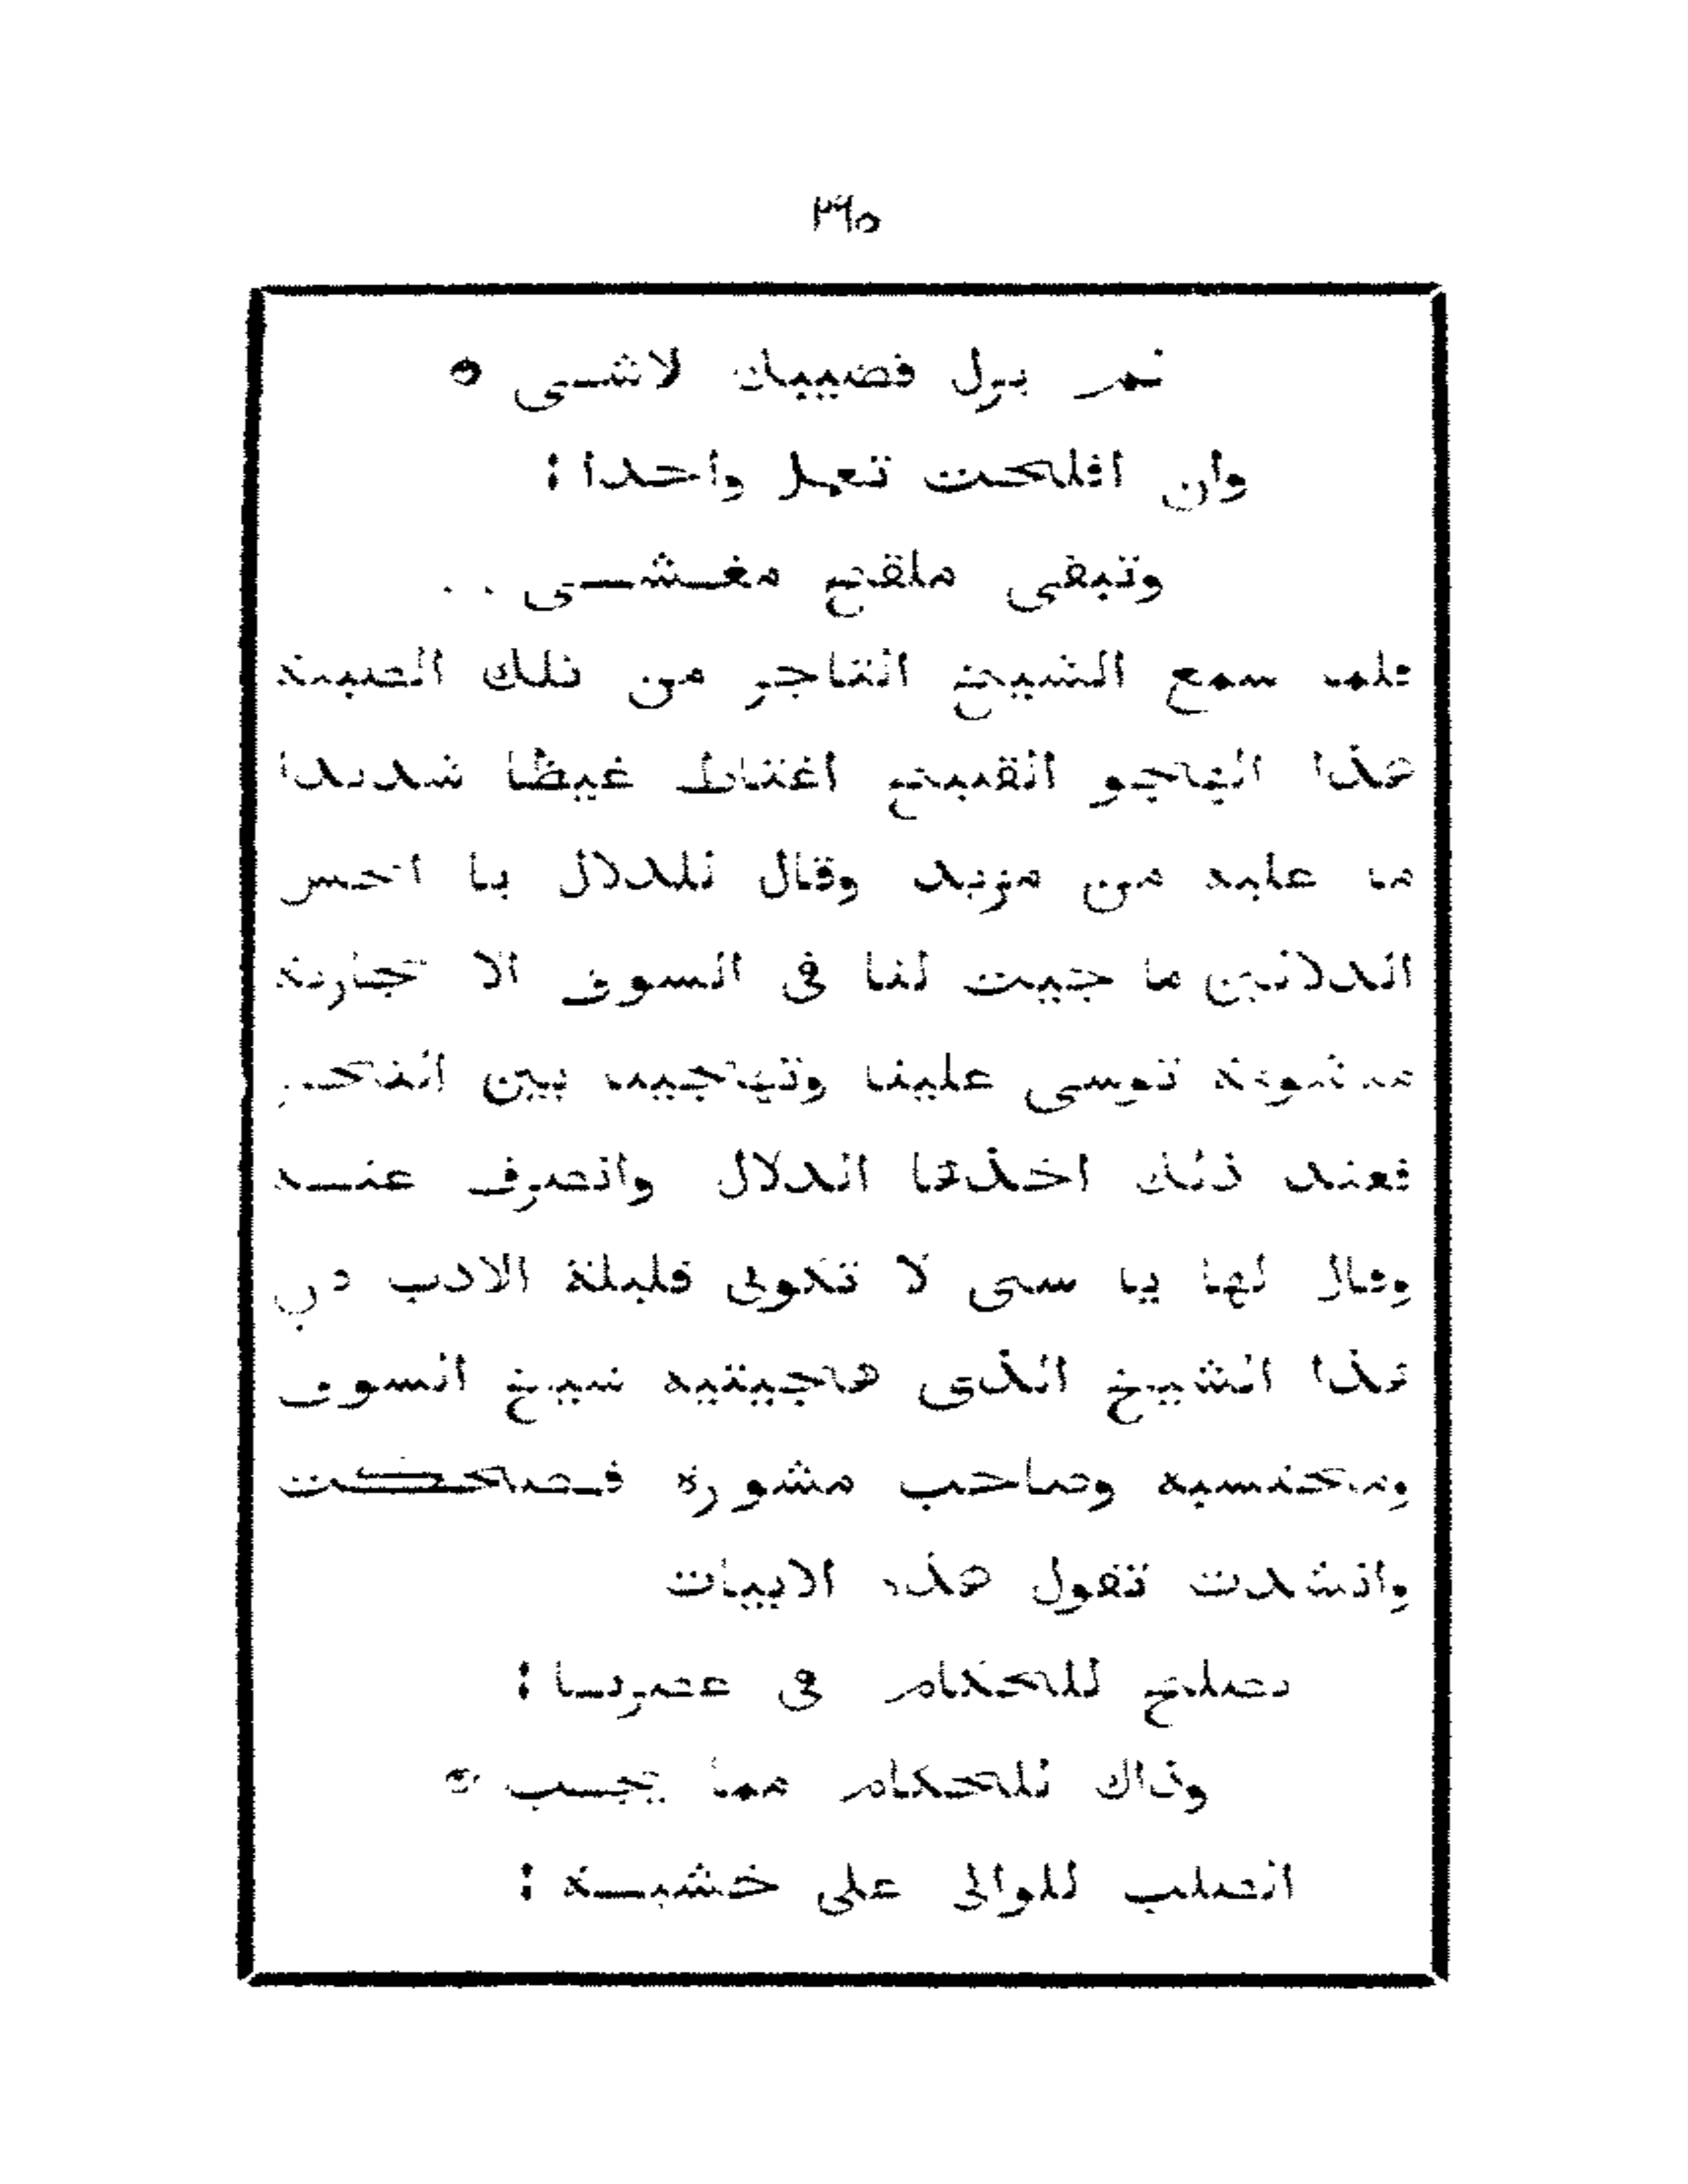 ٢٩٥
لم يزل قضيبك لاشى ٥
وان افلحت تعمل واحدا :
وتبقى ملقح مغشى ..
فلما سمع الشيخ التاجر من تلك الصبية
هذا الهجو القبيح اغتاظ غيظا شديدا
ما عليه من مزيد وقال للدلال يا انحس
الدلالين ما جيبت لنا فى السوق الا جارية
توسى علينا وتهاجينا بين التجار
فعند ذلك اخذها الدلال وانصرف عنه
وقال لها يا ستى لا تكونى قليلة الادب
هذا الشيخ الذى هاجيتيه شيخ السوق
ومحتسبه وصاحب مشورة فضحكت
وانشدت تقول هذه الابيات
يصلح للحكام فى عصرنا :
وذاك للحكام مما يجب ٥
الصلب للوالى على خشبة :